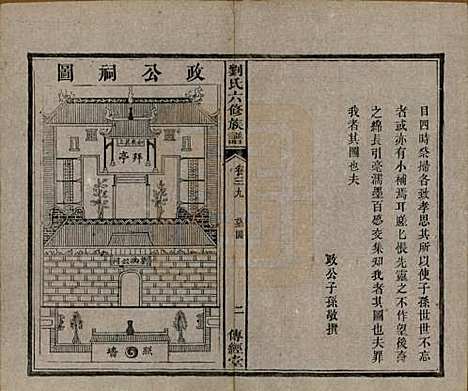 目四時祭掃各致孝思其所以使子孫世世不忘
者或亦有小補焉耳嗟乜悵先靈之不作望後裔
之綿長引毫濡墨百感交集知我者其圖也夫罪
我者其圖也夫
政公子孫敬撰
劉氏六修族譜
卷三九
墓圖
二
傳經堂
政公祠圖
拜亭
劉政公祠
照牆